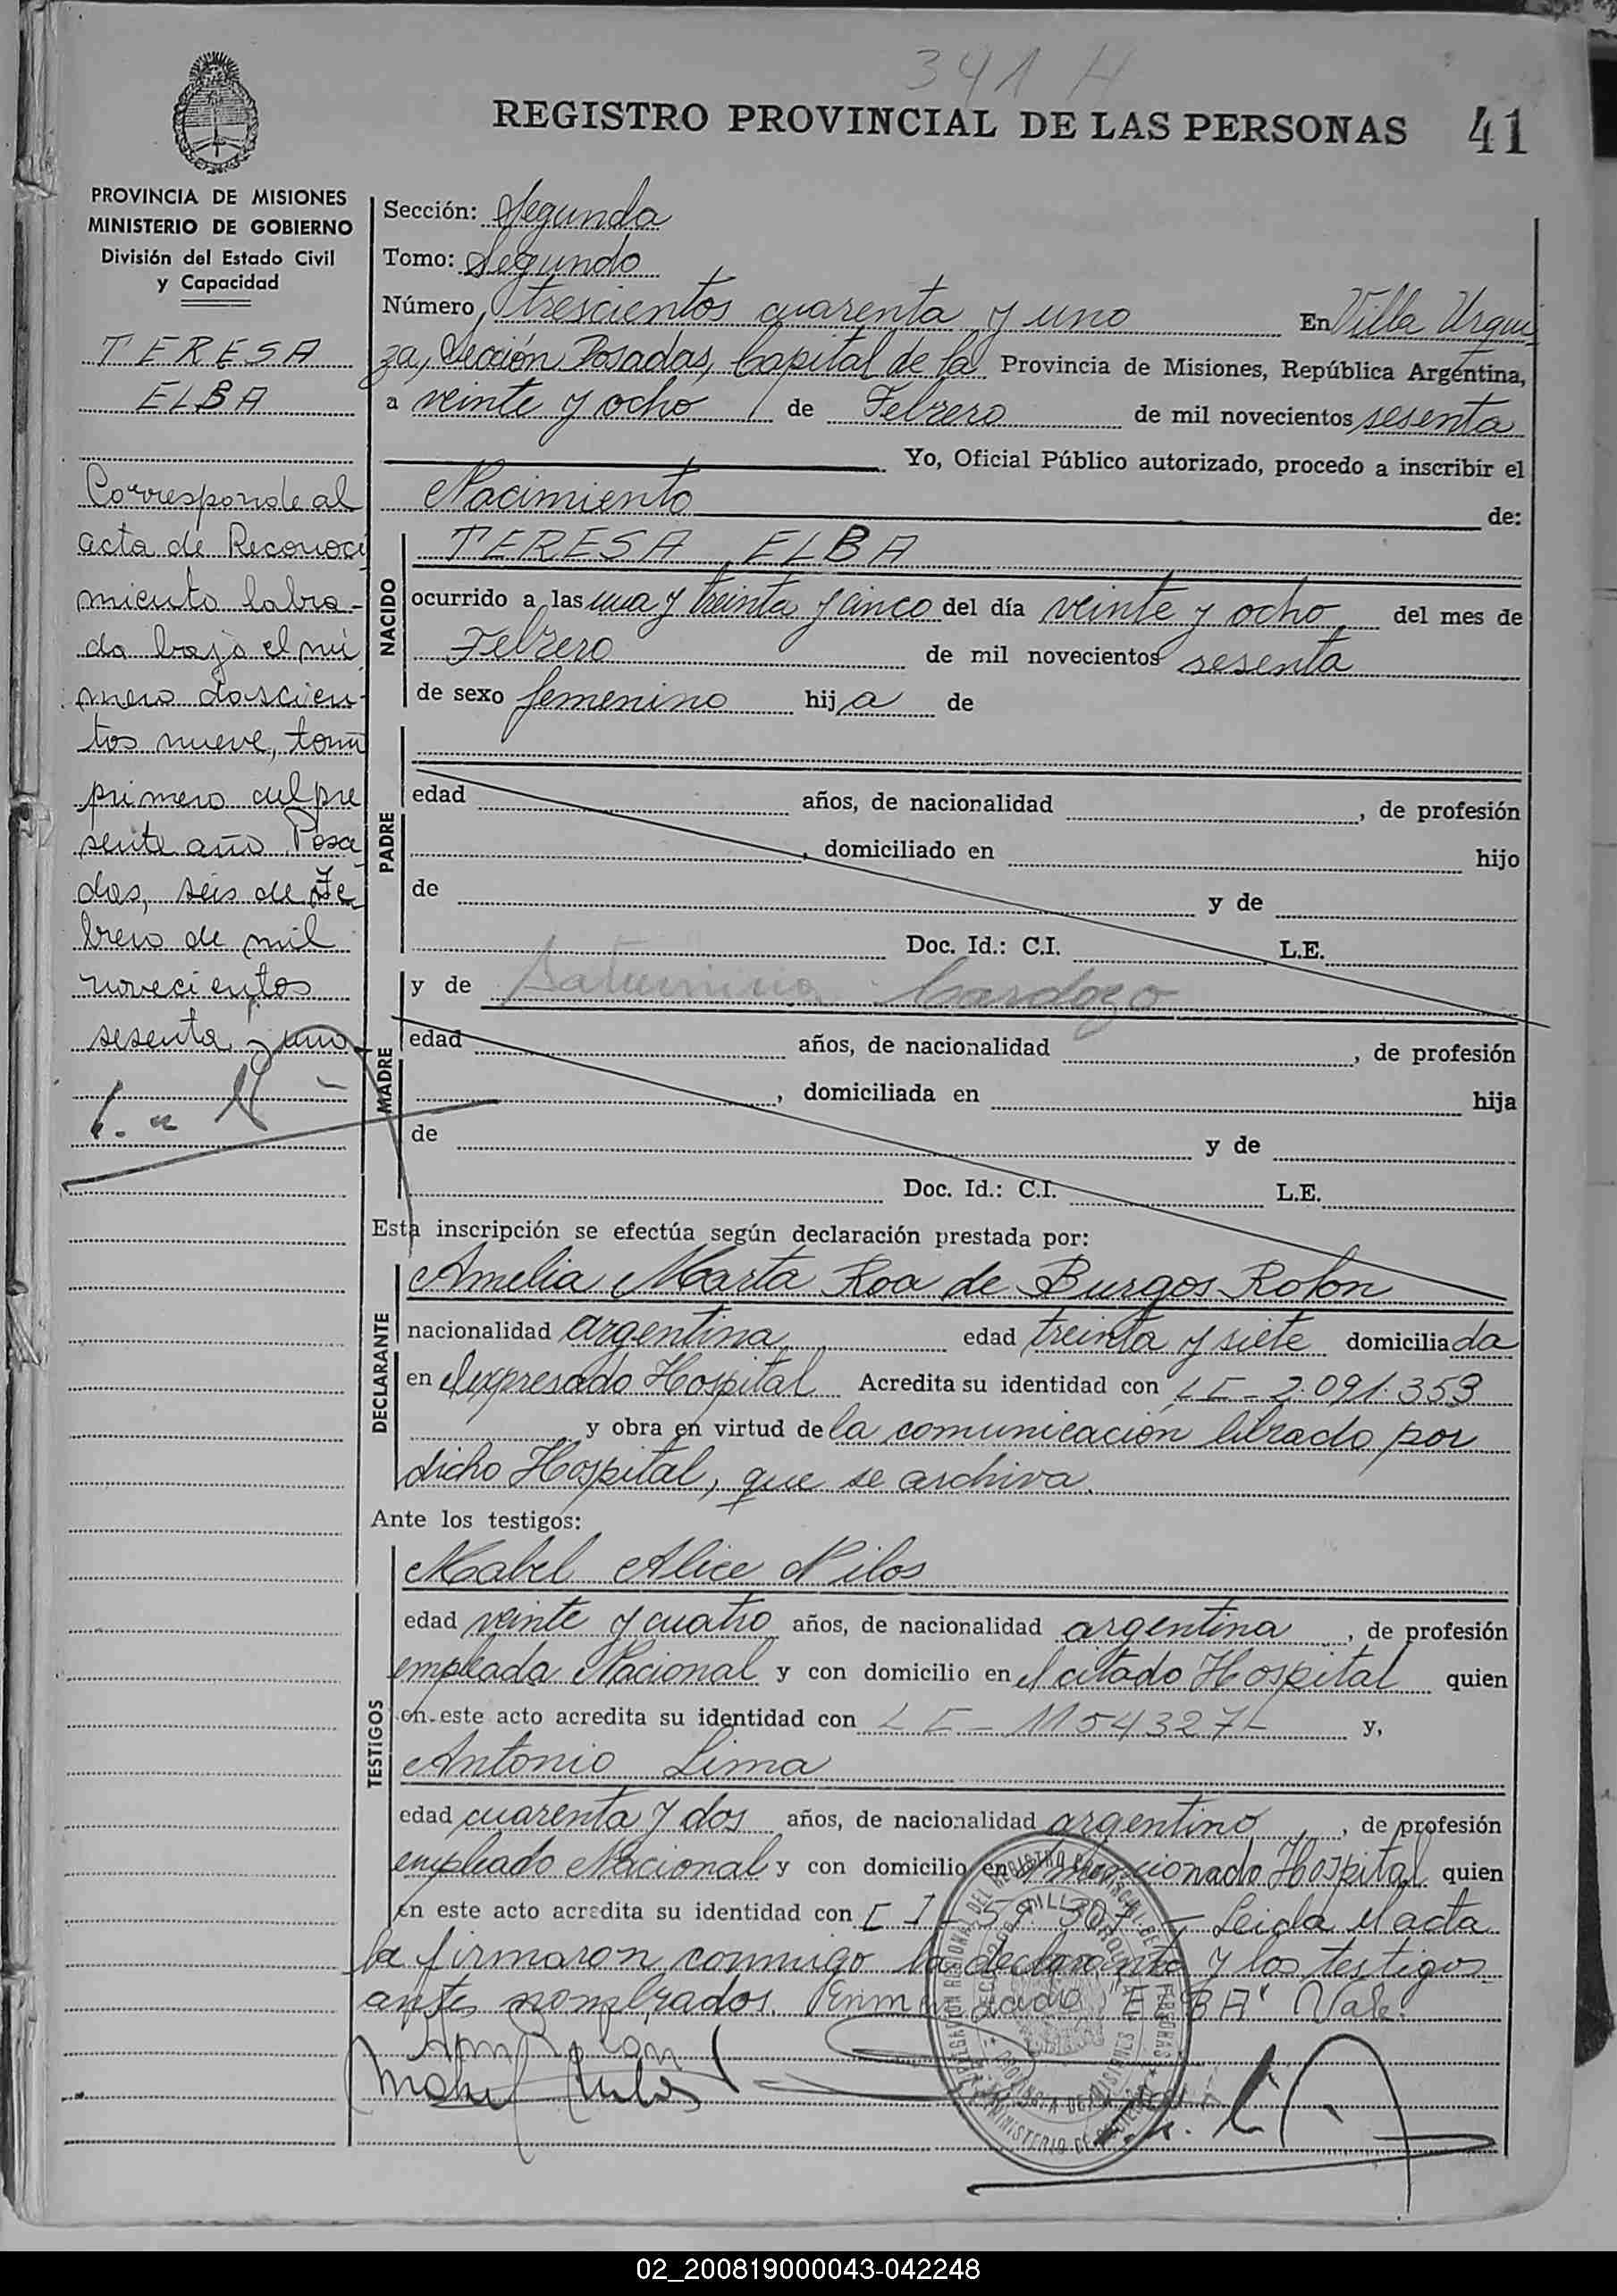 341 H
REGISTRO PROVINCIAL DE LAS PERSONAS 41
PROVINCIA DE MISIONES
MINISTERIO DE GOBIERNO
División del Estado Civil
y Capacidad
TERESA
ELBA
Corresponde al
acta de Reconoci
miento labra-
da bajo el nú
mero doscien-
tos nueve, tomo
primero del pre
sente año. Posa
das, seis de Fe
brero de mil
novecientos
sesenta y uno
Sección: Segunda
Tomo: Segundo
Número trescientos cuarenta y uno En Villa Urqui
za, Sección Posadas, Capital de la Provincia de Misiones, República Argentina,
a veinte y ocho de Febrero de mil novecientos sesenta
Yo, Oficial Público autorizado, procedo a inscribir el
Nacimiento de:
NACIDO
TERESA ELBA
ocurrido a las una y treinta y cinco del día veinte y ocho del mes de
Febrero de mil novecientos sesenta
de sexo femenino hija de
PADRE
edad años, de nacionalidad , de profesión
, domiciliado en hijo
de y de
Doc. Id.: C.I. L.E.
y de Saturnina Cardozo
MADRE
edad años, de nacionalidad , de profesión
, domiciliada en hija
de y de
Doc. Id.: C.I. L.E.
Esta inscripción se efectúa según declaración prestada por:
DECLARANTE
Amelia Marta Roa de Burgos Rolon
nacionalidad argentina edad treinta y siete domiciliada
en el expresado Hospital Acredita su identidad con LC-2.091.353
y obra en virtud de la comunicación librado por
dicho Hospital, que se archiva.
Ante los testigos:
TESTIGOS
Mabel Alice Nilos
edad veinte y cuatro años, de nacionalidad argentina , de profesión
empleada Nacional y con domicilio en el citado Hospital quien
en este acto acredita su identidad con LC-1154327- y,
Antonio Lima
edad cuarenta y dos años, de nacionalidad argentino , de profesión
empleado Nacional y con domicilio en el mencionado Hospital quien
en este acto acredita su identidad con C I - 59.307 - Leida el acta
la firmaron conmigo la declarante y los testigos
antes nombrados. Enmendado "ELBA" Vale.
02_200819000043-042248